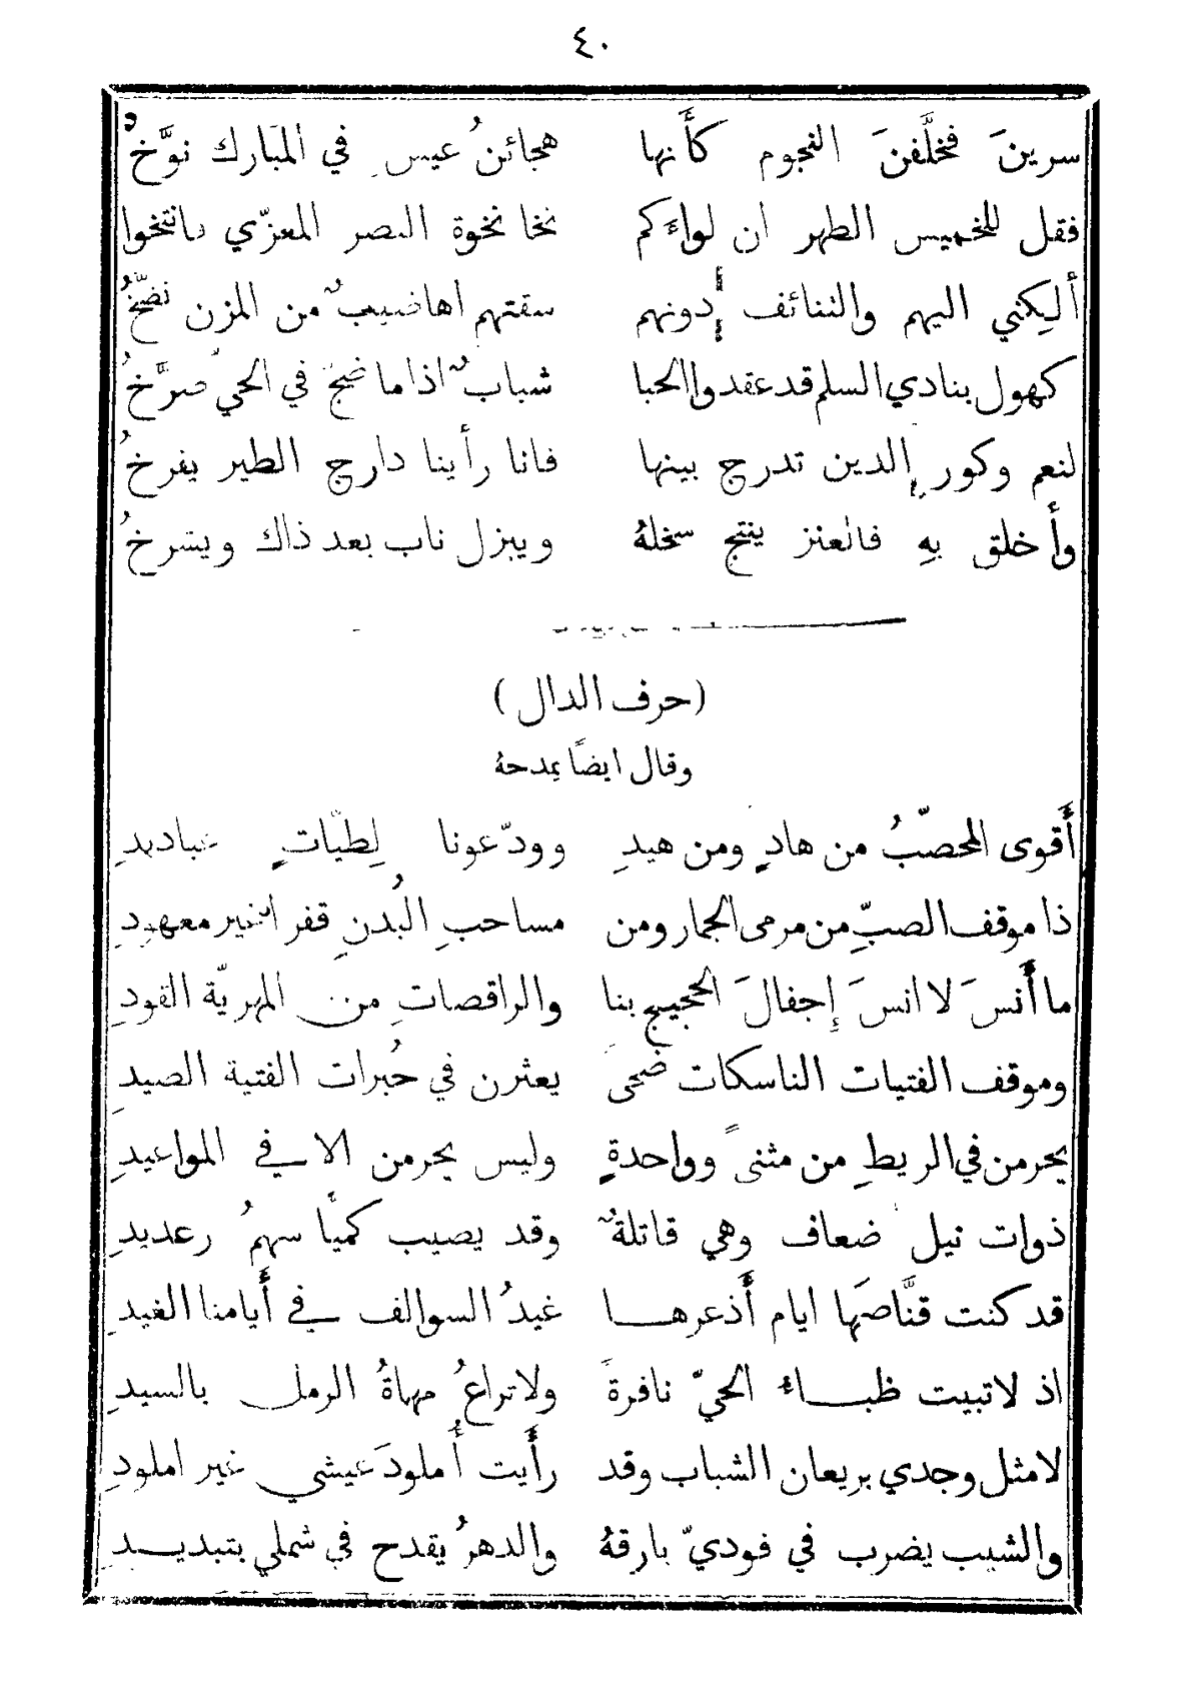 ٤٠
سرينَ فخلَّفنَ النجوم كأَنها هجائنُ عيس في المَبارك نوَّخُ
فقل للخميس الطهر ان لواءَكم نخا نخوة النصر المعزّي فانتخوا
ألِكني اليهم والتنائف دونهم سقتهم اهاضيبٌ من المزن نضَّخُ
كهول بنادي السلم قد عقدوا الحبا شبابٌ اذا ما ضجَّ في الحي صرَّخُ
لنعم وكور الدين تدرج بينها فانا رأينا دارج الطير يفرخُ
وأخلق بهِ فالعنز ينتج سخلهُ ويبزل ناب بعد ذاك ويشرخُ
(حرف الدال)
وقال ايضاً يمدحهُ
أَقوى المحصَّبُ من هادٍ ومن هيدِ وودّعونا لِطيَّاتٍ عباديدِ
ذا موقف الصبِّ من مرمى الجمار ومن مساحبِ البُدنِ قفر اغير معهودِ
ما أَنسَ لا انسَ إِجفالَ الحجيج بنا والراقصاتِ من المهريّة القودِ
وموقف الفتيات الناسكات ضحىً يعثرن في حُبرات الفتية الصيدِ
يحرمن في الريطِ من مثنىً وواحدةٍ وليس يحرمن الا في المواعيدِ
ذوات نيل ضعاف وهي قاتلةٌ وقد يصيب كميًّا سهمُ رعديدِ
قد كنت قنَّاصَها ايام أَذعرها غيدُ السوالف في أَيامنا الغيدِ
اذ لا تبيت ظباء الحيّ نافرةً ولا تراعُ مهاةُ الرمل بالسيدِ
لا مثل وجدي بريعان الشباب وقد رأَيت أُملودَ عيشي غير املودِ
والشيب يضرب في فوديّ بارقهُ والدهرُ يقدح في شملي بتبديد